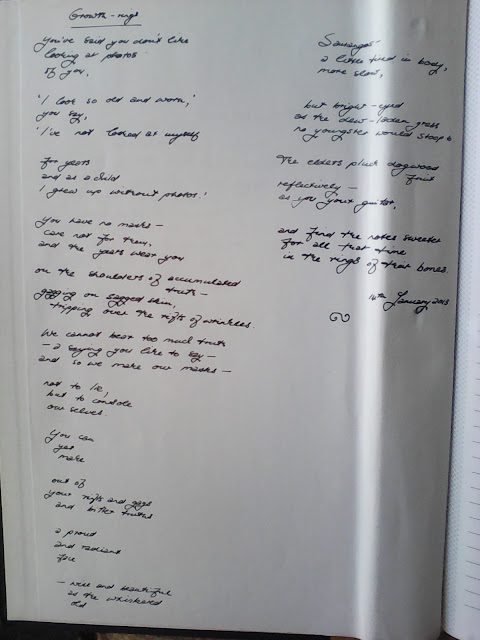 Growth-rings
You've said you don't like
looking at photos
of you,
'I look so old and worn,'
you say,
'I've not looked at myself
for years
and as a child
I grew up without photos.'
You have no masks –
care not for them,
and the years wear you
on the shoulders of accumulated
truth –
on sagged skin,
tripping over the rifts of wrinkles.
We cannot bear too much truth
– a saying you like to say –
and so we make our masks –
not to lie,
but to console
our selves.
You can
yet
make
out of
your rifts and
and bitter truths
a proud
and radiant
face
– wise and beautiful
as the whiskered
old
a little tired in body,
more slow,
but bright-eyed
as the dew-laden grass
no youngster would stoop to.
The elders pluck dogwood
fruit
reflectively –
as you your guitar,
and find the notes sweeter
for all that time
in the rings of their bones.
16th January 2013